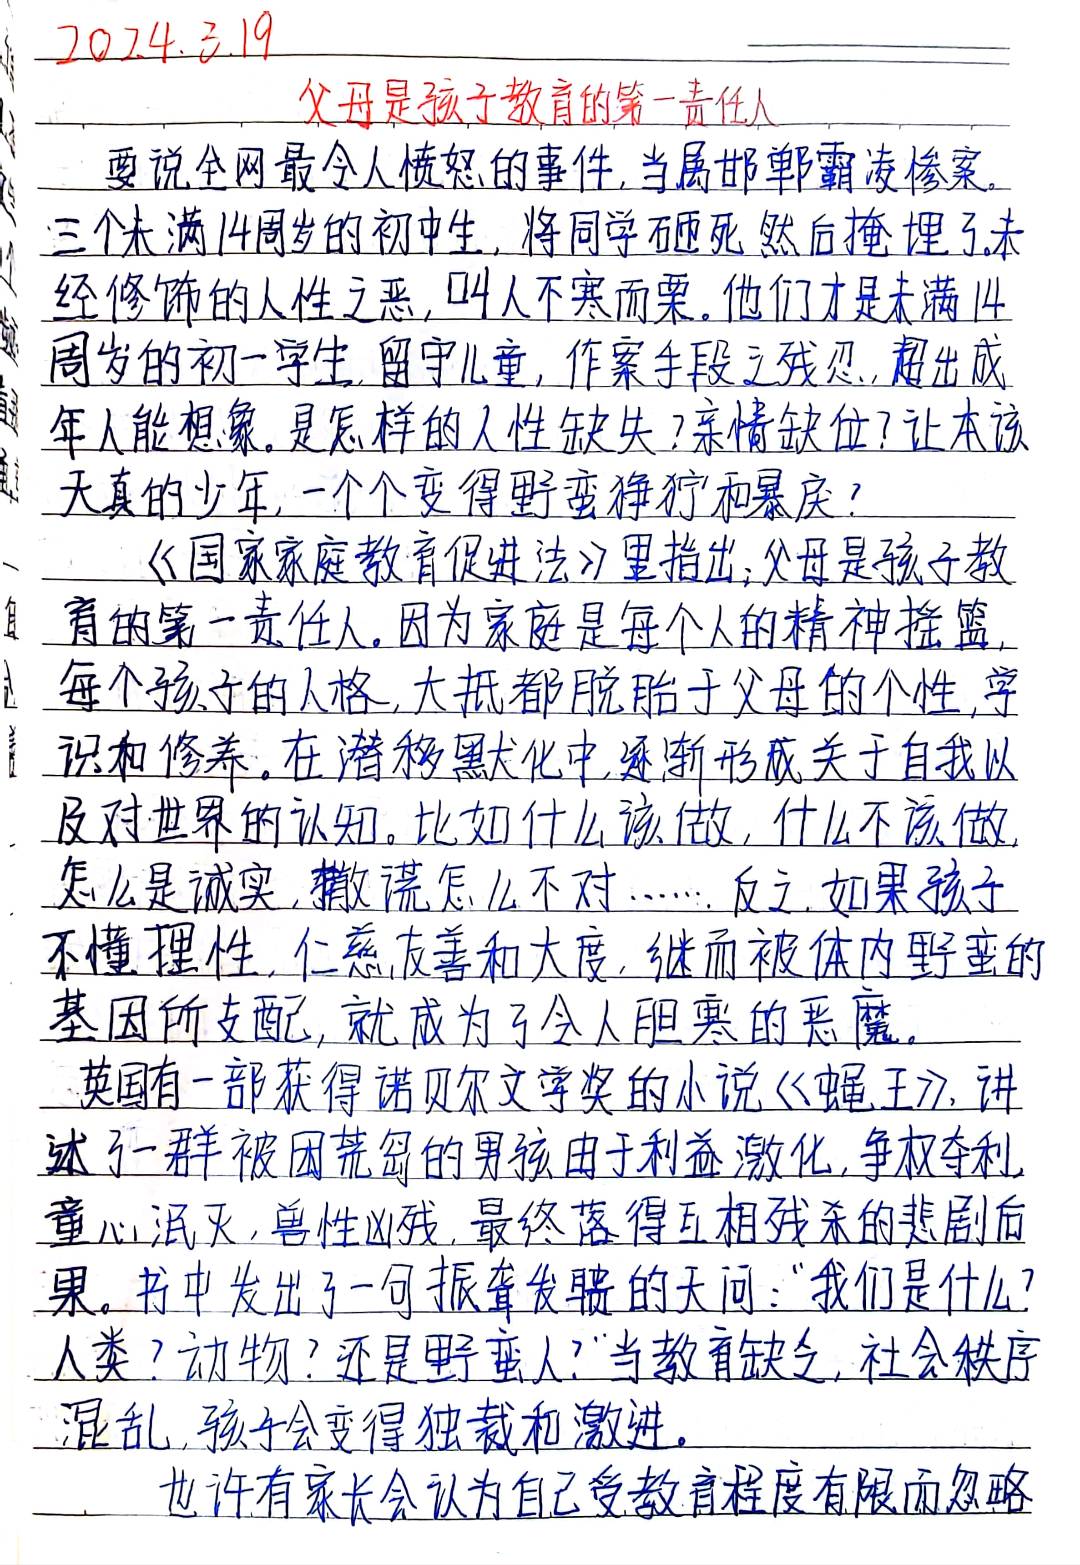 2024.3.19
父母是孩子教育的第一责任人
要说全网最令人愤怒的事件,当属邯郸霸凌惨案。
三个未满14周岁的初中生,将同学砸死然后掩埋了。未
经修饰的人性之恶,叫人不寒而栗。他们才是未满14
周岁的初一学生,留守儿童,作案手段之残忍,超出成
年人能想象。是怎样的人性缺失?亲情缺位?让本该
天真的少年,一个个变得野蛮狰狞和暴戾?
《国家家庭教育促进法》里指出;父母是孩子教
育的第一责任人。因为家庭是每个人的精神摇篮,
每个孩子的人格,大抵都脱胎于父母的个性,学
识和修养。在潜移默化中,逐渐形成关于自我以
及对世界的认知。比如什么该做,什么不该做,
怎么是诚实,撒谎怎么不对……反之,如果孩子
不懂理性,仁慈,友善和大度,继而被体内野蛮的
基因所支配,就成为了令人胆寒的恶魔。
英国有一部获得诺贝尔文学奖的小说《蝇王》,讲
述了一群被困荒岛的男孩由于利益激化,争权夺利,
童心泯灭,兽性凶残,最终落得互相残杀的悲剧后
果。书中发出了一句振聋发聩的天问:“我们是什么?
人类?动物?还是野蛮人?”当教育缺乏,社会秩序
混乱,孩子会变得独裁和激进。
也许有家长会认为自己受教育程度有限而忽略